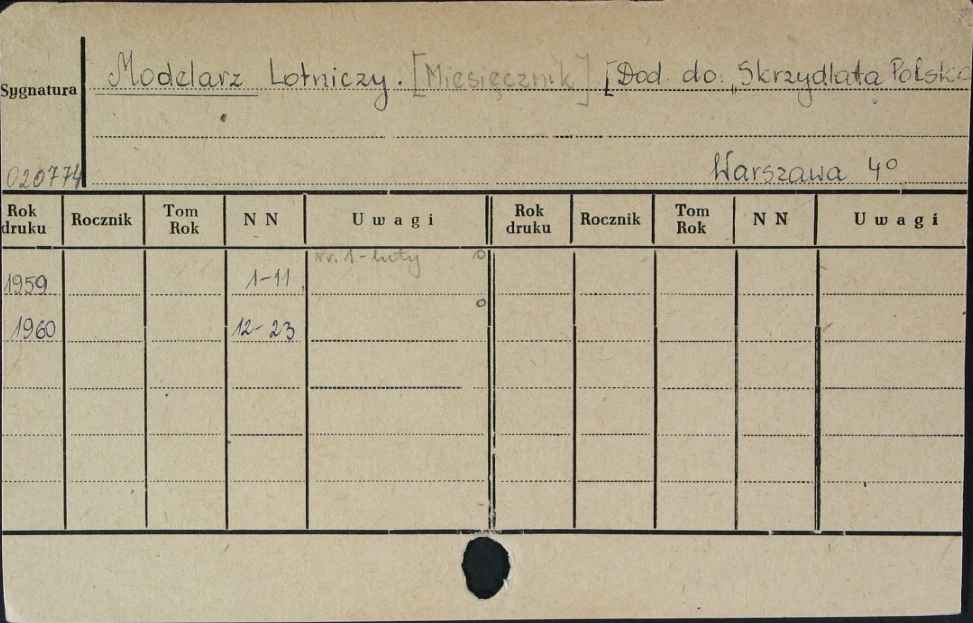 Sygnatura Modelarz Lotniczy. [Miesięcznik] [Dod. do: „Skrzydlata Polska
020774 Warszawa 4°
Rok druku Rocznik Tom Rok N N Uwagi Rok druku Rocznik Tom Rok N N Uwagi
1959 1-11 Nr. 1 - luty o
1960 12-23 o